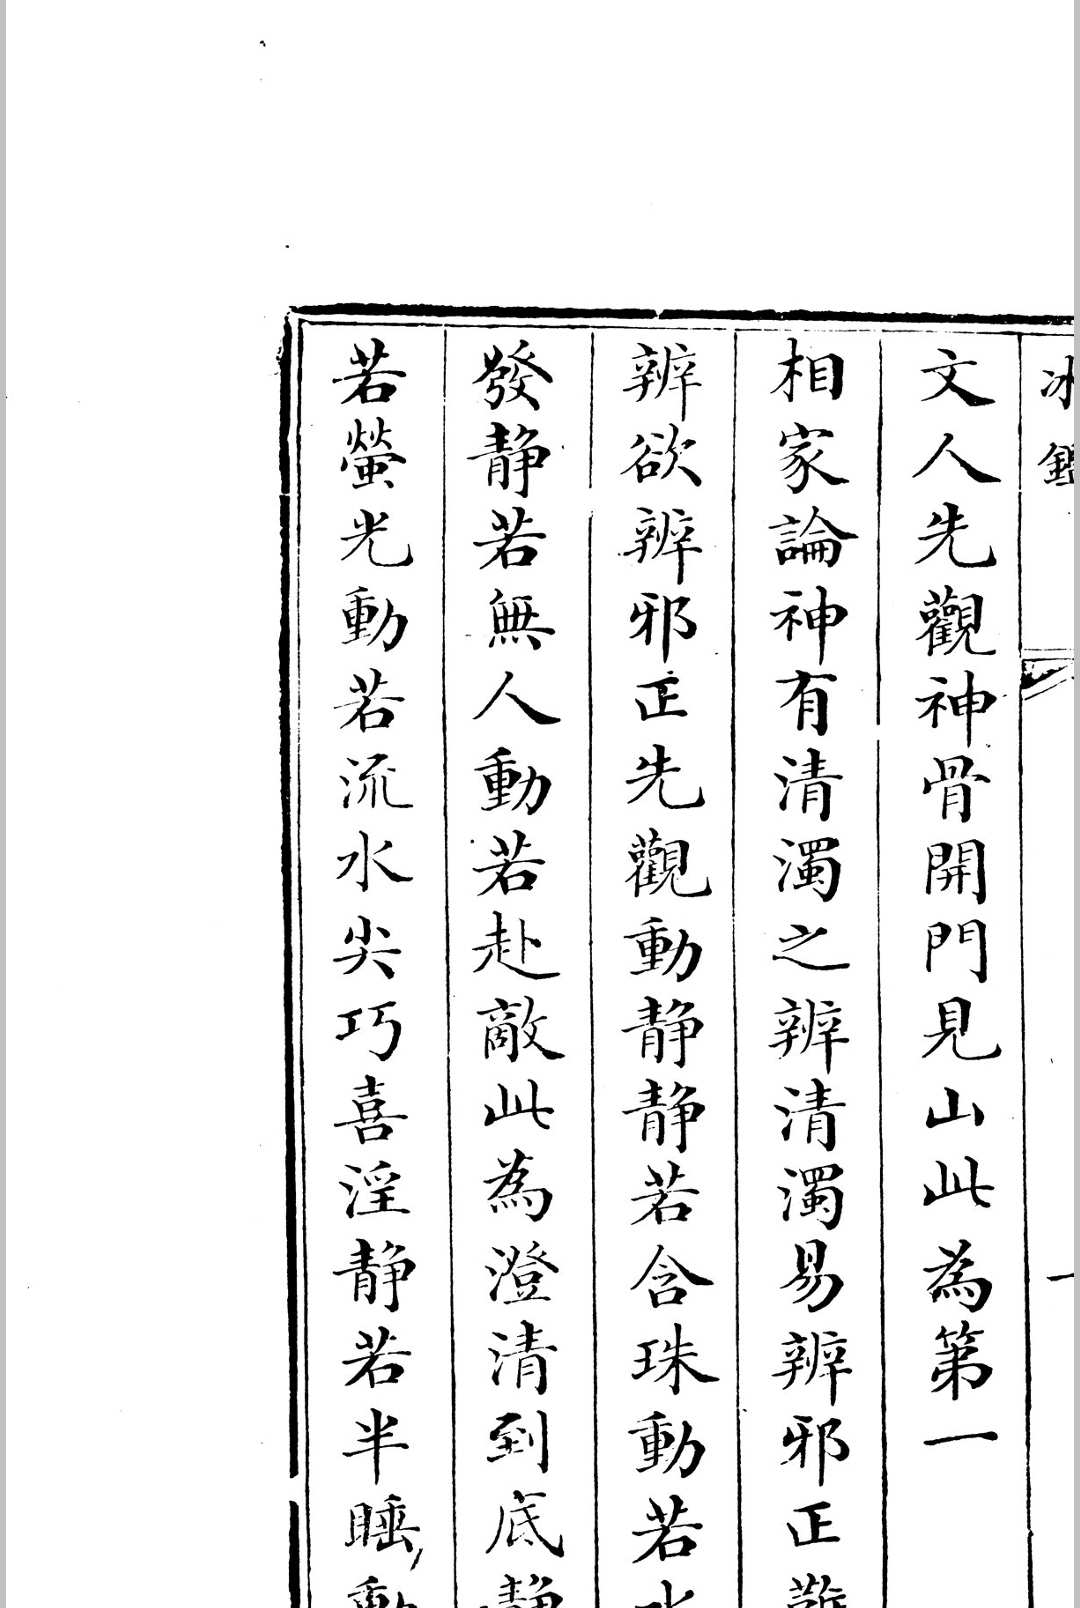 冰鑑
一
文人先觀神骨開門見山此為第一
相家論神有清濁之辨清濁易辨邪正難
辨欲辨邪正先觀動静静若含珠動若水
發静若無人動若赴敵此為澄清到底静
若螢光動若流水尖巧喜淫静若半睡動